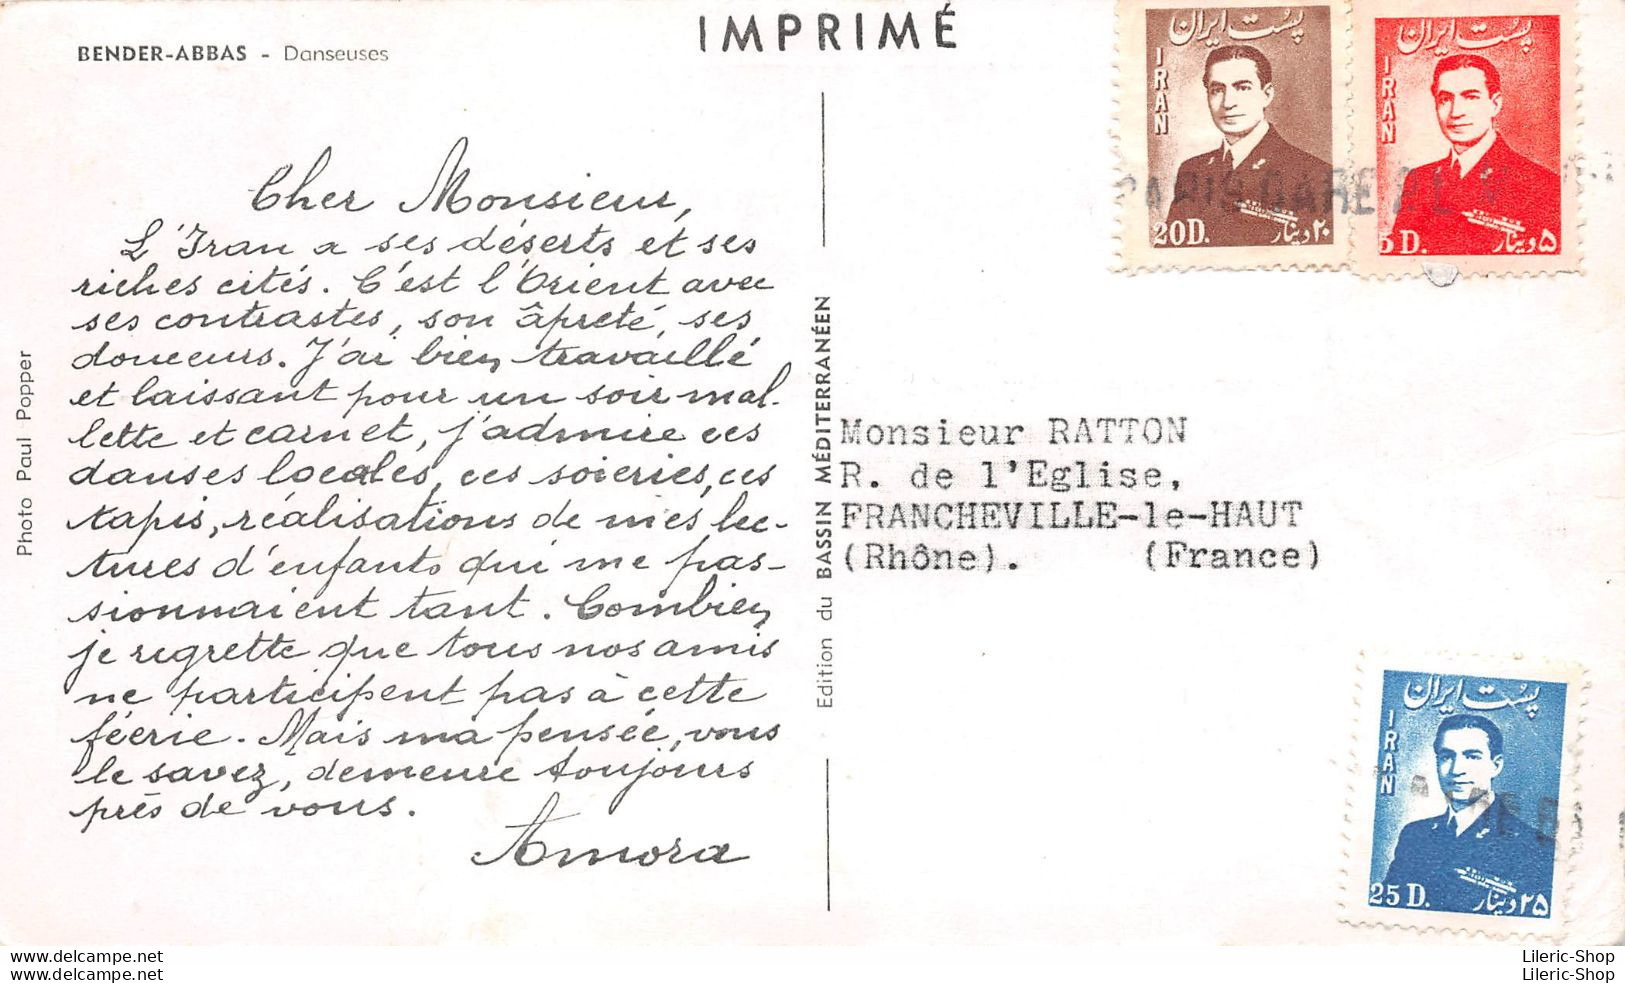 IMPRIMÉ
BENDER-ABBAS - Danseuses
Cher Monsieur,
L'Iran a ses déserts et ses
riches cités. C'est l'Orient avec
ses contrastes, son âpreté, ses
douceurs. J'ai bien travaillé
et laissant pour un soir mal-
lette et carnet, j'admire ces
danses locales, ces soieries, ces
tapis, réalisations de mes lec-
tures d'enfants qui me pas-
sionnaient tant. Combien
je regrette que tous nos amis
ne participent pas à cette
féerie. Mais ma pensée, vous
le savez, demeure toujours
près de vous.
Amora
Photo Paul Popper
Edition du BASSIN MÉDITERRANÉEN
پست ایران
IRAN
20D.
۲۰ دینار
پست ایران
IRAN
5D.
۵ دینار
PARIS GARE DE
Monsieur RATTON
R. de l'Eglise,
FRANCHEVILLE-le-HAUT
(Rhône). (France)
پست ایران
IRAN
25D.
۲۵ دینار
www.delcampe.net
www.delcampe.net
Lileric-Shop
Lileric-Shop